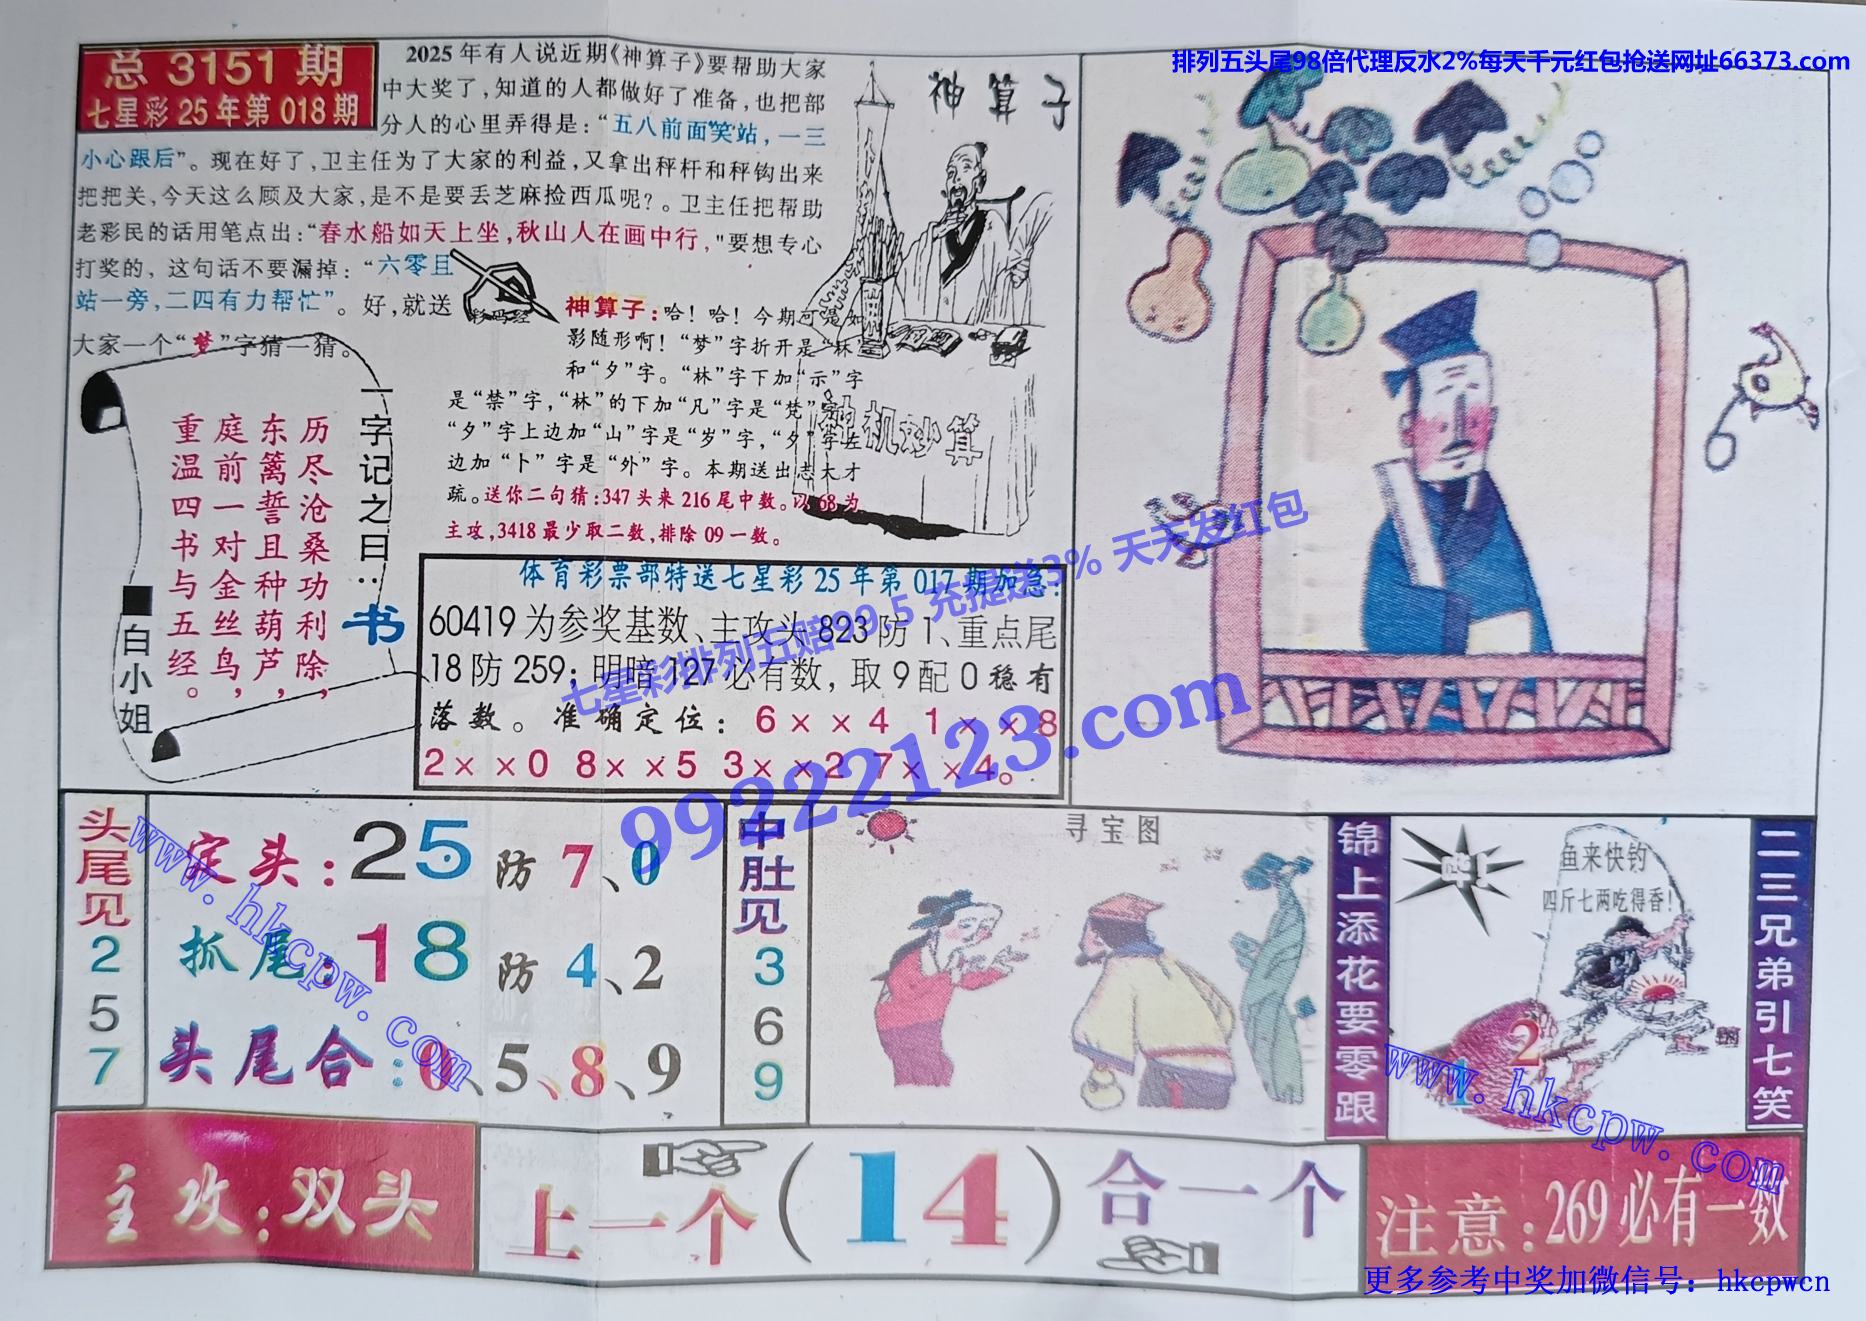 排列五头尾98倍代理反水2%每天千元红包抢送网址66373.com
总 3151 期
七星彩 25 年第 018 期
2025 年有人说近期《神算子》要帮助大家
中大奖了，知道的人都做好了准备，也把部
分人的心里弄得是：“五八前面笑站，一三
小心跟后”。现在好了，卫主任为了大家的利益，又拿出秤杆和秤钩出来
把把关，今天这么顾及大家，是不是要丢芝麻捡西瓜呢？。卫主任把帮助
老彩民的话用笔点出：“春水船如天上坐，秋山人在画中行，"要想专心
打奖的，这句话不要漏掉：“六零且
站一旁，二四有力帮忙”。好，就送
大家一个“梦”字猜一猜。
彩码经
神算子
神机妙算
神算子：哈！哈！今期可是如
影随形啊！“梦”字折开是“林”
和“夕”字。“林”字下加“示”字
是“禁”字，“林”的下加“凡”字是“梵”字
“夕”字上边加“山”字是“岁”字，“夕”字左
边加“卜”字是“外”字。本期送出志大才
疏。送你二句猜：347 头来 216 尾中数。以 68 为
主攻，3418 最少取二数，排除 09 一数。
一字记之曰：书
历尽沧桑功利除，
东篱誓且种葫芦，
庭前一对金丝鸟，
重温四书与五经。
■白小姐
体育彩票部特送七星彩 25 年第 017 期加急：
60419 为参奖基数、主攻头 823 防 1、重点尾
18 防 259；明暗 127 必有数，取 9 配 0 稳有
落数。准确定位：6××4 1××8
2××0 8××5 3××2 7××4。
七星彩排列五赔99.5 充提送3% 天天发红包
99222123.com
头尾见257
定头：25 防 7、0
抓尾：18 防 4、2
头尾合：0、5、8、9
www.hkcpw.com
中肚见369
寻宝图
锦上添花要零跟
鱼来快钓
四斤七两吃得香！
2
1
www.hkcpw.com
二三兄弟引七笑
主攻：双头
上一个（14）合一个
注意：269必有一数
更多参考中奖加微信号：hkcpwcn